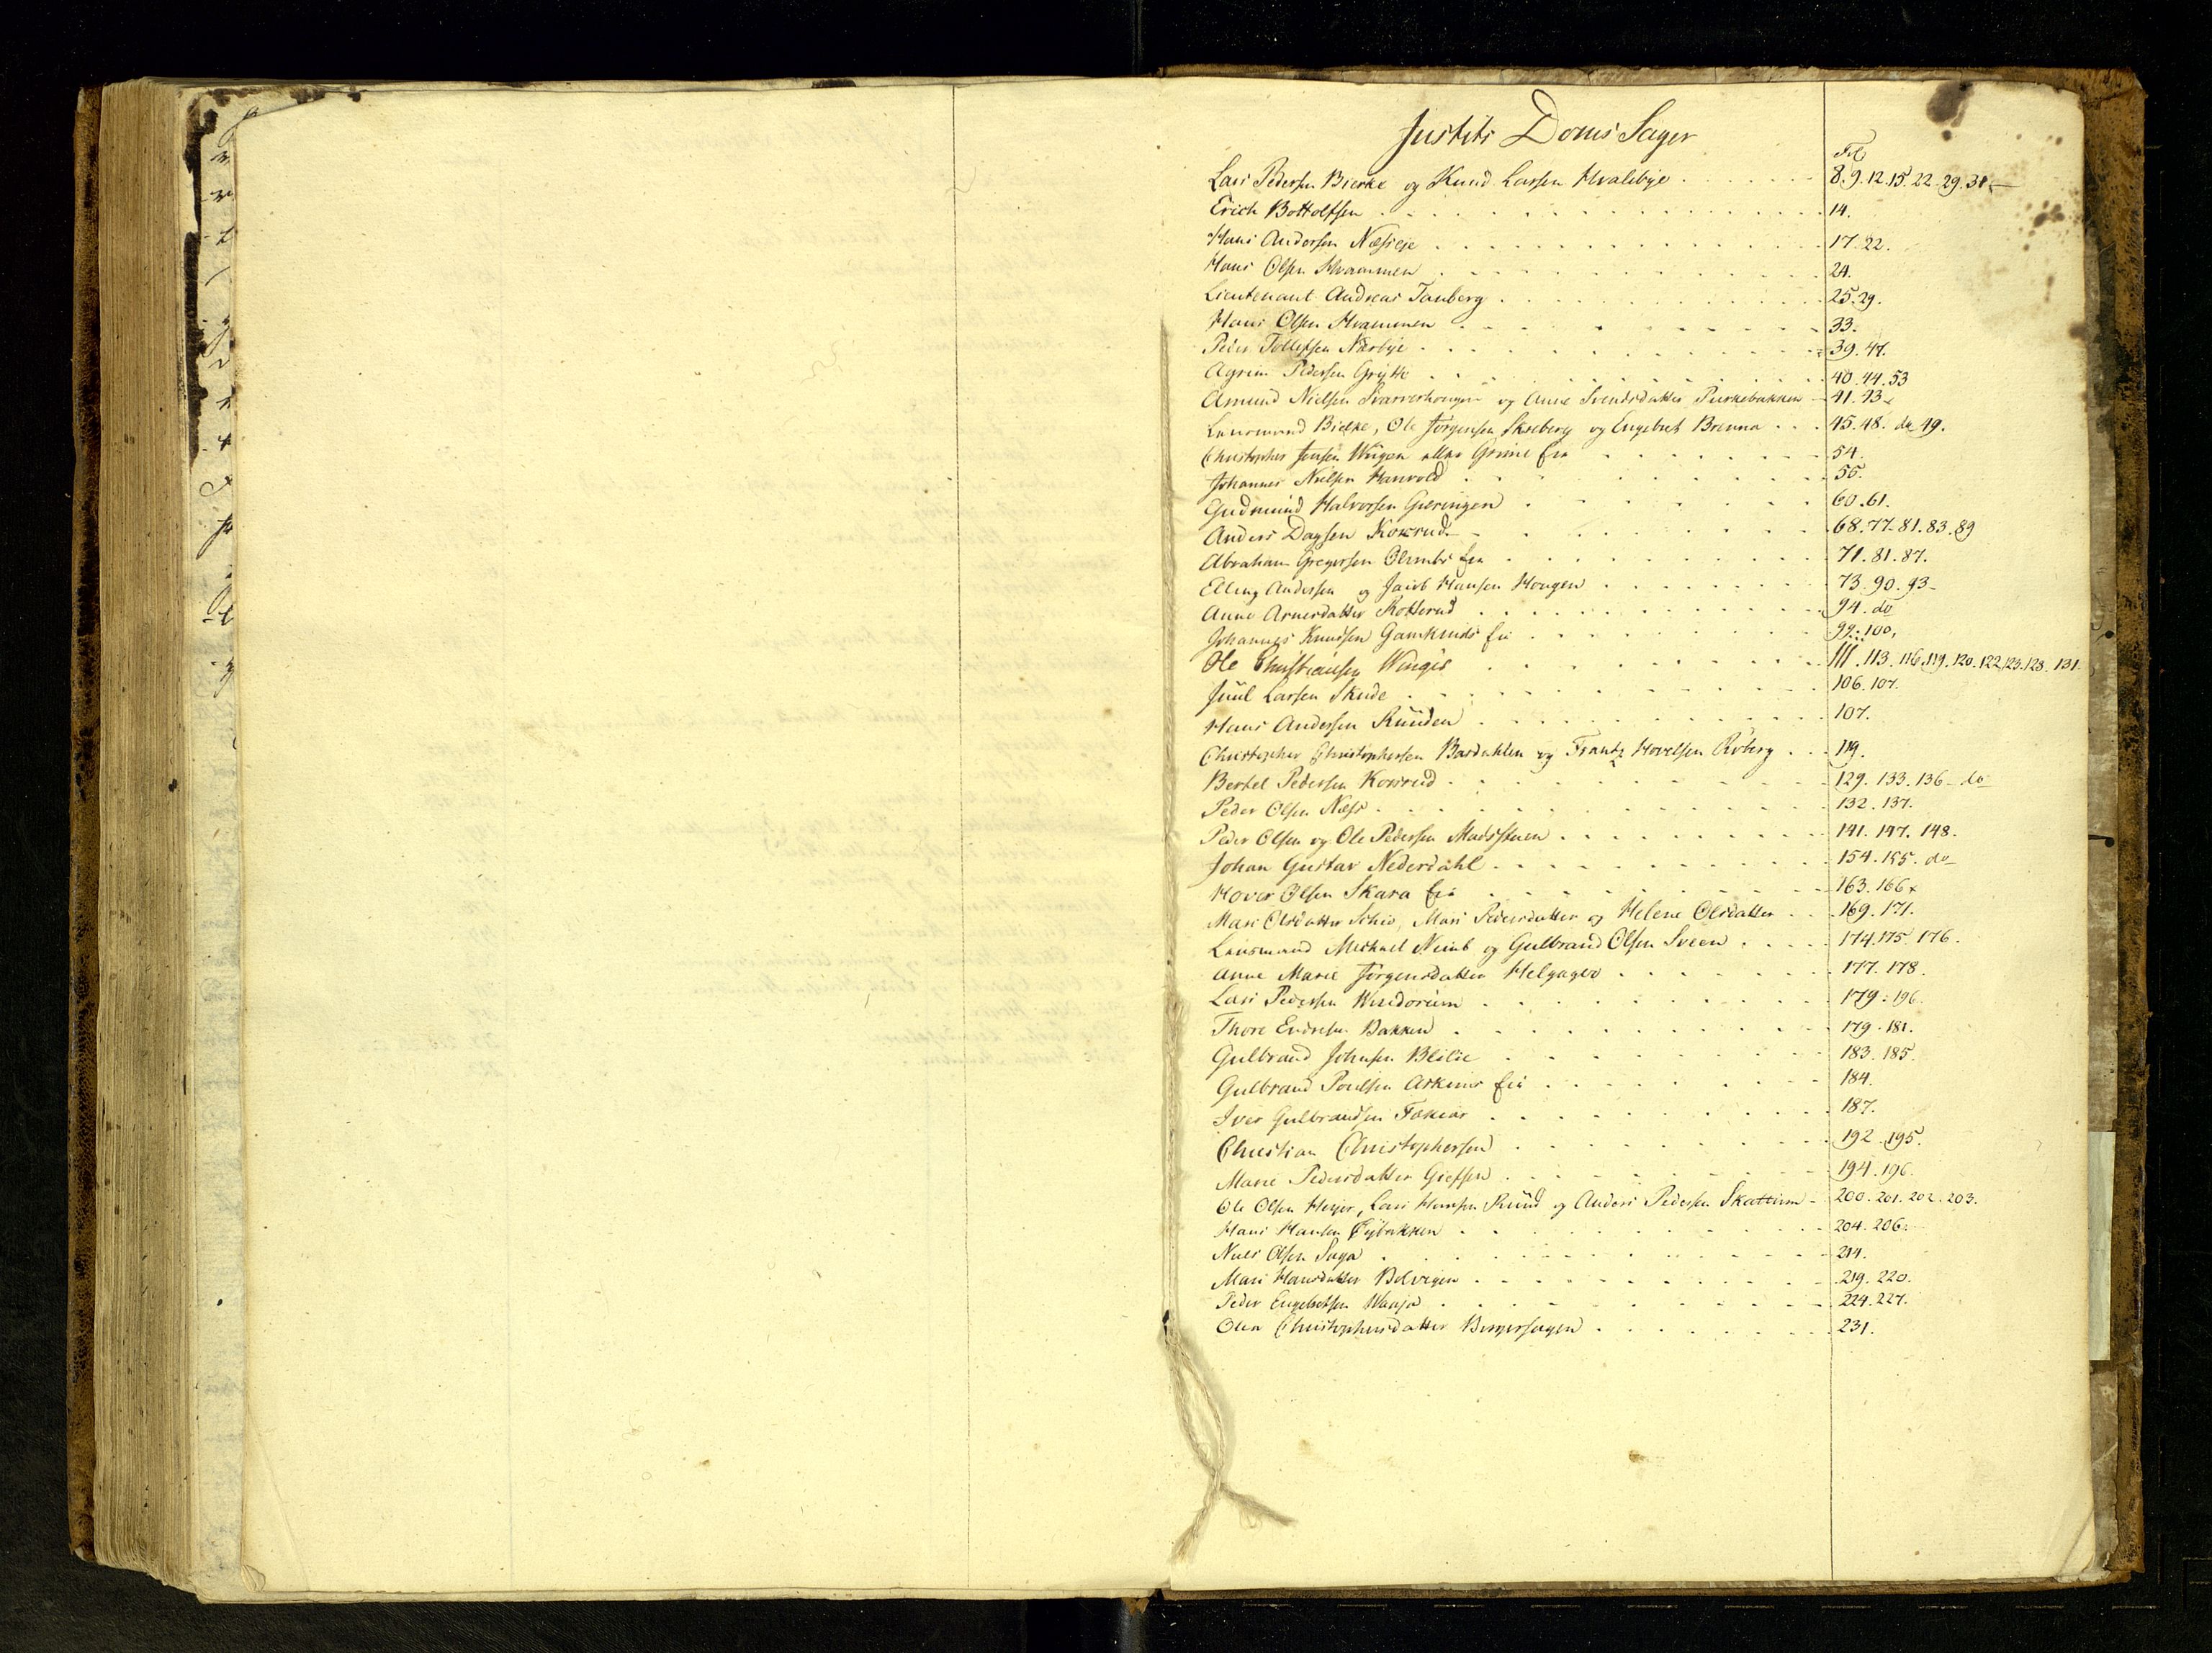 Justits Doms Sager
Fol
Lars Pedersen Bierke og Knud Larsen Hvalebye . . . 8. 9. 12. 15. 22. 29. 31
Erich Bottolfsen . . . 14.
Hans Andersen Næsseje . . . 17. 22.
Hans Olsen Hvammen . . . 24.
Lieutenant Andreas Tanberg . . . 25. 29.
Hans Olsen Hvammen . . . 33.
Peder Tollefsen Nærbye . . . 39. 47.
Agrim Pedersen Grytte . . . 40. 44. 53
Amund Nielsen Svarverhougen og Anne Svendsdatter Purkebakken 41. 43
Lensmand Bielke, Ole Jørgensen Skseberg og Engebret Brenna . . . 45. 48. do 49.
Christopher Jensen Wiigen eller Grime Eie . . . 54.
Johannes Nielsen Hanvold . . . 55.
Gudmund Halvorsen Gieringen . . . 60. 61.
Anders Dagsen Korsrud . . . 68. 77. 81. 83. 89
Abraham Gregersen Olimbs Eie . . . 71. 81. 87.
Elling Andersen og Jacob Hansen Hougen . . . 73. 90. 93
Anne Arnesdatter Rotterud . . . 94. do
Johannes Knudsen Gamkinds Eie . . . 99. 100.
Ole Christiansen Wingis . . . 111. 113. 116. 119. 120. 122. 123. 128. 131.
Juul Larsen Skude . . . 106. 107.
Hans Andersen Ruuden . . . 107.
Christopher Christophersen Bardahlen og Frantz Hovelsen Roberg . . . 119.
Bertel Pedersen Korsrud . . . 129. 133. 136 do
Peder Olsen Næss . . . 132. 137.
Peder Olsen og Ole Pedersen Madsstuen . . . 141. 147. 148.
Johan Gustav Nederdahl . . . 154. 155. do
Hover Olsen Skara Eie . . . 163. 166
Mari Olsdatter Schie, Mari Pedersdatter og Helene Olsdatter . . . 169. 171.
Lensmand Michael Neimb og Gulbrand Olsen Sveen . . . 174. 175. 176.
Anne Marie Jørgensdatter Helgager . . . 177. 178.
Lars Pedersen . . . 179. 196.
Thore Endresen Bakken . . . 179. 181.
Gulbrand Johnsen Blilie . . . 183. 185.
Gulbrand Poulsen Askims Eie . . . 184.
Iver Gulbrandsen . . . 187.
Christian Christophersen . . . 192. 195.
Marie Pedersdatter Giefsen . . . 194. 196.
Ole Olsen Heyer, Lars Hansen Ruud og Anders Pedersen Skattum 200. 201. 202. 203.
Hans Hansen Øybakken . . . 204. 206.
Niels Olsen Saga . . . 214.
Mari Hansdatter Belvigen . . . 219. 220.
Peder Engebretsen . . . 224. 227.
Olea Christophersdatter . . . 231.